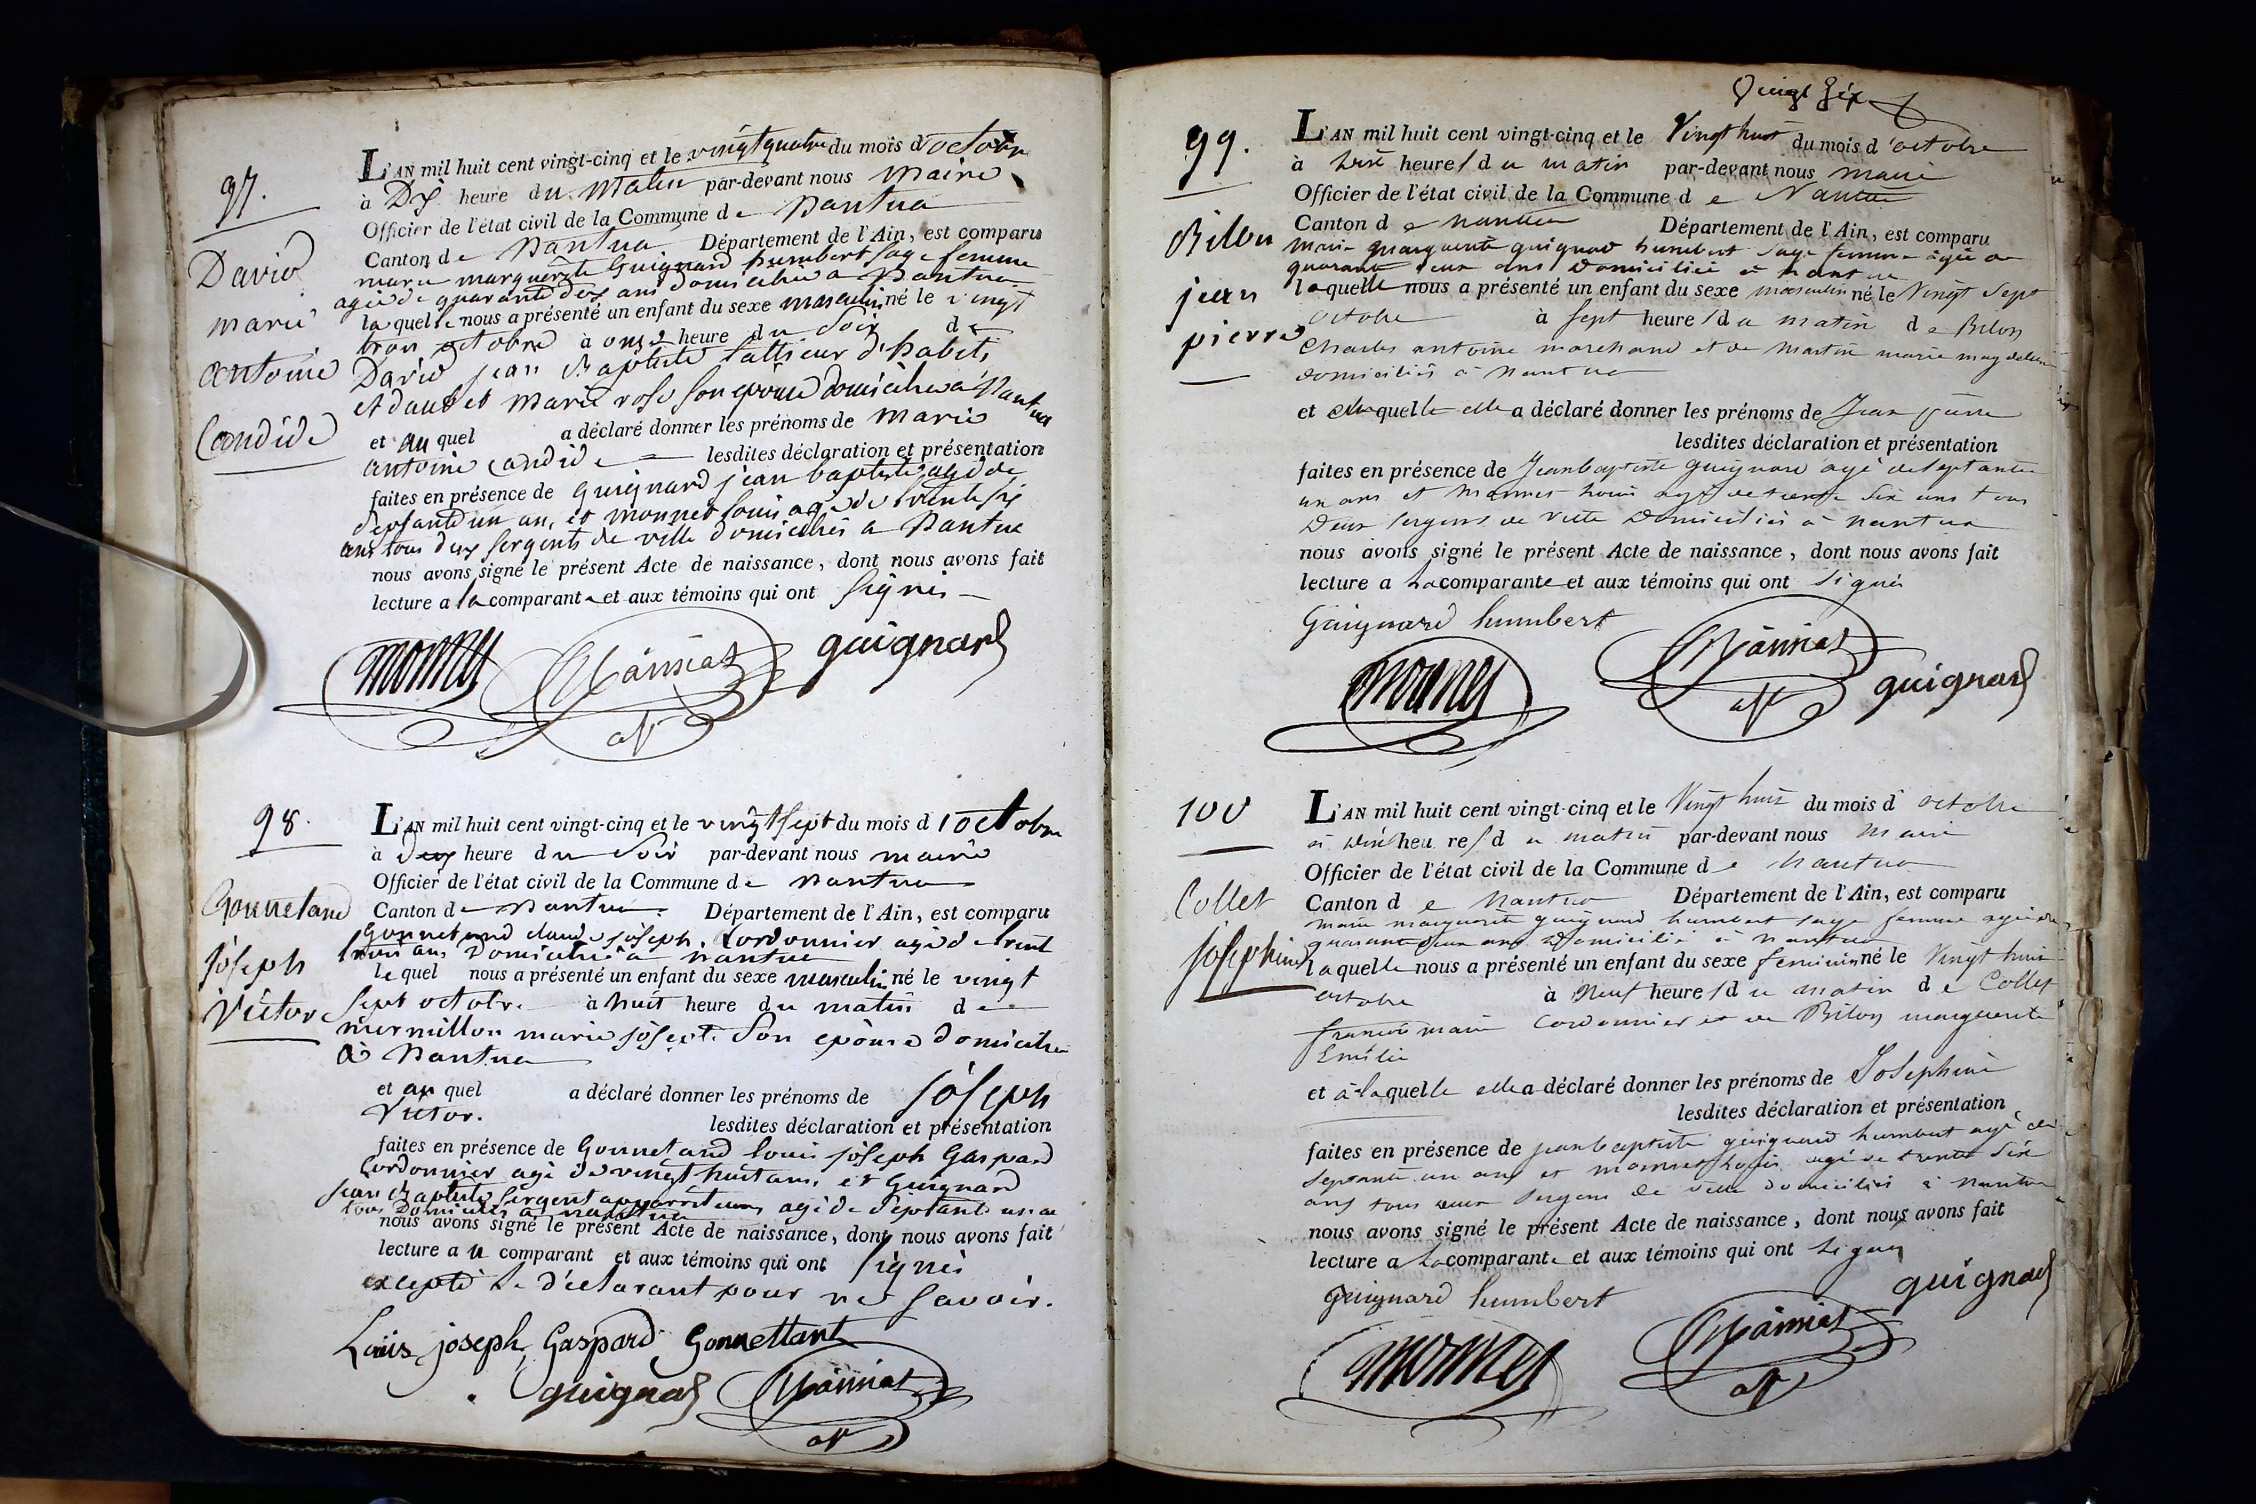 97.
David
marie
antoine
Candide
L'AN mil huit cent vingt-cinq et le vingt quatre du mois d'octobre
à Dix heure du Matin par-devant nous maire
Officier de l'état civil de la Commune de Nantua
Canton de Nantua Département de l'Ain, est comparu
marie marguerite Guignard humbert sage femme
agée de quarante deux ans domiciliée a Nantua
laquelle nous a présenté un enfant du sexe masculin né le vingt
trois octobre à onze heure du Soir de
David jean Baptiste tallieur d'habits
et marie rose son épouse domiciliés a Nantua
et au quel a déclaré donner les prénoms de marie
antoine candide lesdites déclaration et présentation
faites en présence de Guignard jean baptiste agé de
septante un an, et monnet louis agé de trente six
ans tous deux sergents de ville domiciliés a Nantua
nous avons signé le présent Acte de naissance, dont nous avons fait
lecture a la comparante et aux témoins qui ont signés
monnet guignard
98.
Gonnetand
joseph
Victor
L'AN mil huit cent vingt-cinq et le vingt sept du mois d'octobre
à deux heure du soir par-devant nous maire
Officier de l'état civil de la Commune de Nantua
Canton de Nantua. Département de l'Ain, est comparu
Gonnetand claude joseph, Cordonnier agé de trente
trois ans, Domicilié a nantua
le quel nous a présenté un enfant du sexe masculin né le vingt
sept octobre à huit heure du matin de
mermillon marie josept son épouse domiciliée
à Nantua
et au quel a déclaré donner les prénoms de joseph
Victor. lesdites déclaration et présentation
faites en présence de Gonnetand louis joseph Gaspard
Cordonnier agé de vingt huit ans, et Guignard
jean Baptiste sergent agé de septante un an
tous Domiciliés a nantua
nous avons signé le présent Acte de naissance, dont nous avons fait
lecture a u comparant et aux témoins qui ont signés
excepté le déclarant pour ne savoir.
Louis joseph Gaspard Gonnettant
guignard
Vingt Six
99.
Bilon
jean
pierre
L'AN mil huit cent vingt-cinq et le Vingt huit du mois d'octobre
à heures du matin par-devant nous maire
Officier de l'état civil de la Commune de Nantua
Canton de nantua Département de l'Ain, est comparu
marie marguerite guignard humbert sage femme agée de
quarante deux ans domiciliée à nantua
laquelle nous a présenté un enfant du sexe masculin né le Vingt Sept
octobre à sept heures du matin de Bilon
Charles antoine marchand et de Martin marie magdelaine
domiciliés à nantua
et quelle elle a déclaré donner les prénoms de Jean pierre
lesdites déclaration et présentation
faites en présence de Jean baptiste guignard agé de septante
un ans et Monnet louis agé de trente six ans tous
Deux sergens de ville domiciliés à nantua
nous avons signé le présent Acte de naissance, dont nous avons fait
lecture a La comparante et aux témoins qui ont signés
Guignard humbert
monnet guignard
100
Collet
josephine
L'AN mil huit cent vingt-cinq et le Vingt huit du mois d'octobre
à heures du matin par-devant nous Maire
Officier de l'état civil de la Commune de nantua
Canton de Nantua Département de l'Ain, est comparu
marie marguerite guignard humbert sage femme agée de
quarante deux ans domiciliée à nantua
laquelle nous a présenté un enfant du sexe feminin né le Vingt huit
octobre à Neuf heures du matin de Collet
françois marie Cordonnier et de Bilon marguerite
Emélie
et à laquelle elle a déclaré donner les prénoms de Josephine
lesdites déclaration et présentation
faites en présence de jean baptiste guignard humbert agé de
septante un ans et monnet Louis agé de trente six
ans tous deux sergens de ville domiciliés à nantua
nous avons signé le présent Acte de naissance, dont nous avons fait
lecture a La comparante et aux témoins qui ont signés
guignard humbert guignard
monnet